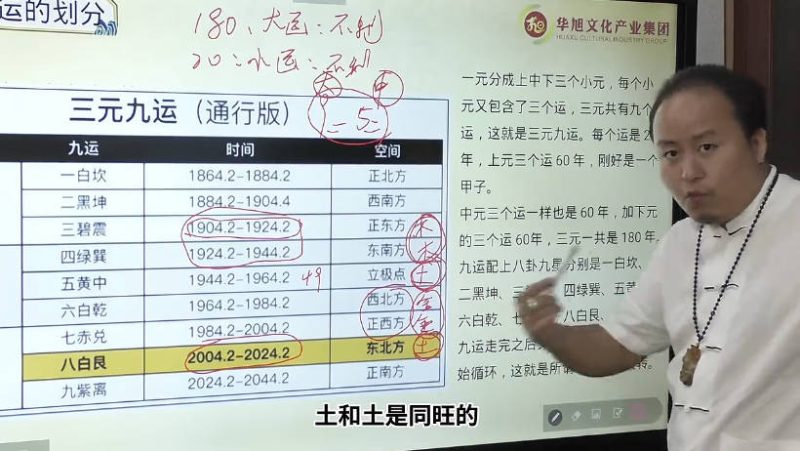 运的划分
180、大运：不利
20：小运：不利
华旭文化产业集团
HUAXU CULTURAL INDUSTRY GROUP
三元九运（通行版）
九运 时间 空间
一白坎 1864.2-1884.2 正北方
二黑坤 1884.2-1904.4 西南方
三碧震 1904.2-1924.2 正东方 木
四绿巽 1924.2-1944.2 东南方 木
五黄中 1944.2-1964.2 49 立极点 土
六白乾 1964.2-1984.2 西北方 金
七赤兑 1984.2-2004.2 正西方 金
八白艮 2004.2-2024.2 东北方 土
九紫离 2024.2-2044.2 正南方
一元分成上中下三个小元，每个小
元又包含了三个运，三元共有九个
运，这就是三元九运。每个运是2
年，上元三个运60年，刚好是一个
甲子。
中元三个运一样也是60年，加下元
的三个运60年，三元一共是180年
九运配上八卦九星分别是一白坎、
二黑坤、三 四绿巽、五黄
六白乾、七 八白艮、
九运走完之后
始循环，这就是所
土和土是同旺的